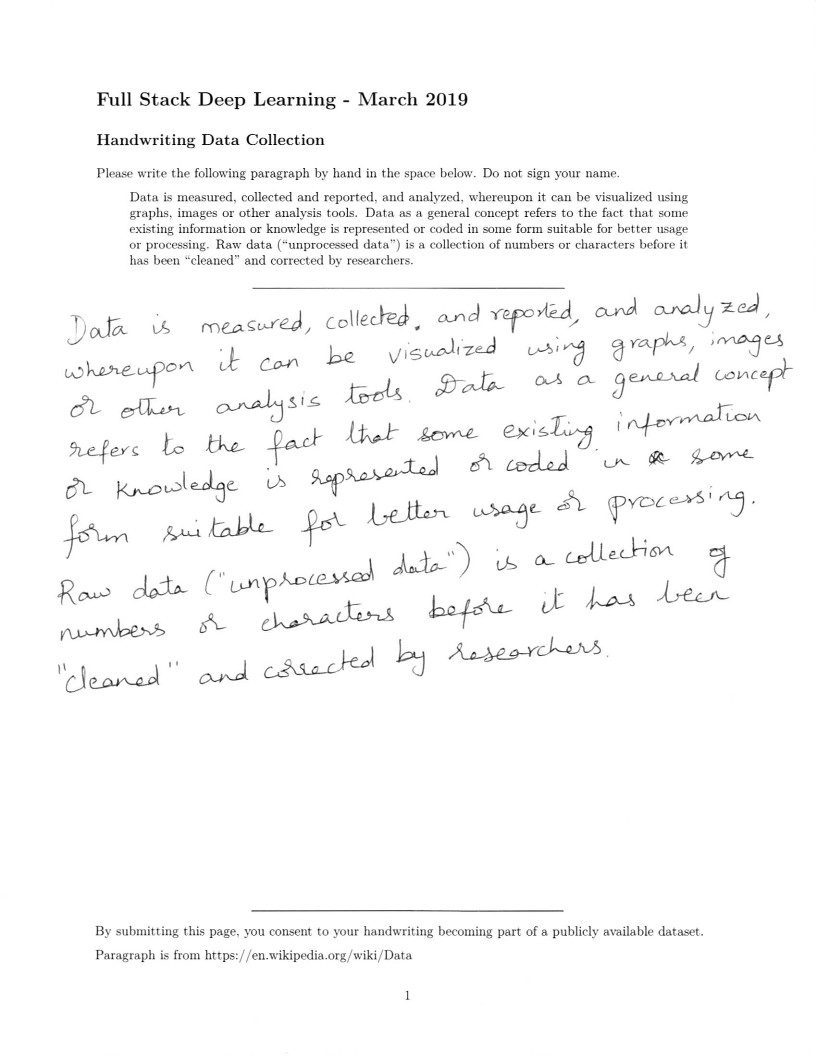 Full Stack Deep Learning - March 2019
Handwriting Data Collection
Please write the following paragraph by hand in the space below. Do not sign your name.
Data is measured, collected and reported, and analyzed, whereupon it can be visualized using
graphs, images or other analysis tools. Data as a general concept refers to the fact that some
existing information or knowledge is represented or coded in some form suitable for better usage
or processing. Raw data (“unprocessed data”) is a collection of numbers or characters before it
has been “cleaned” and corrected by researchers.
Data is measured, collected, and reported, and analyzed,
whereupon it can be visualized using graphs, images
or other analysis tools. Data as a general concept
refers to the fact that some existing information
or knowledge is represented or coded in some
form suitable for better usage or processing.
Raw data ("unprocessed data") is a collection of
numbers or characters before it has been
"cleaned" and corrected by researchers.
By submitting this page, you consent to your handwriting becoming part of a publicly available dataset.
Paragraph is from https://en.wikipedia.org/wiki/Data
1